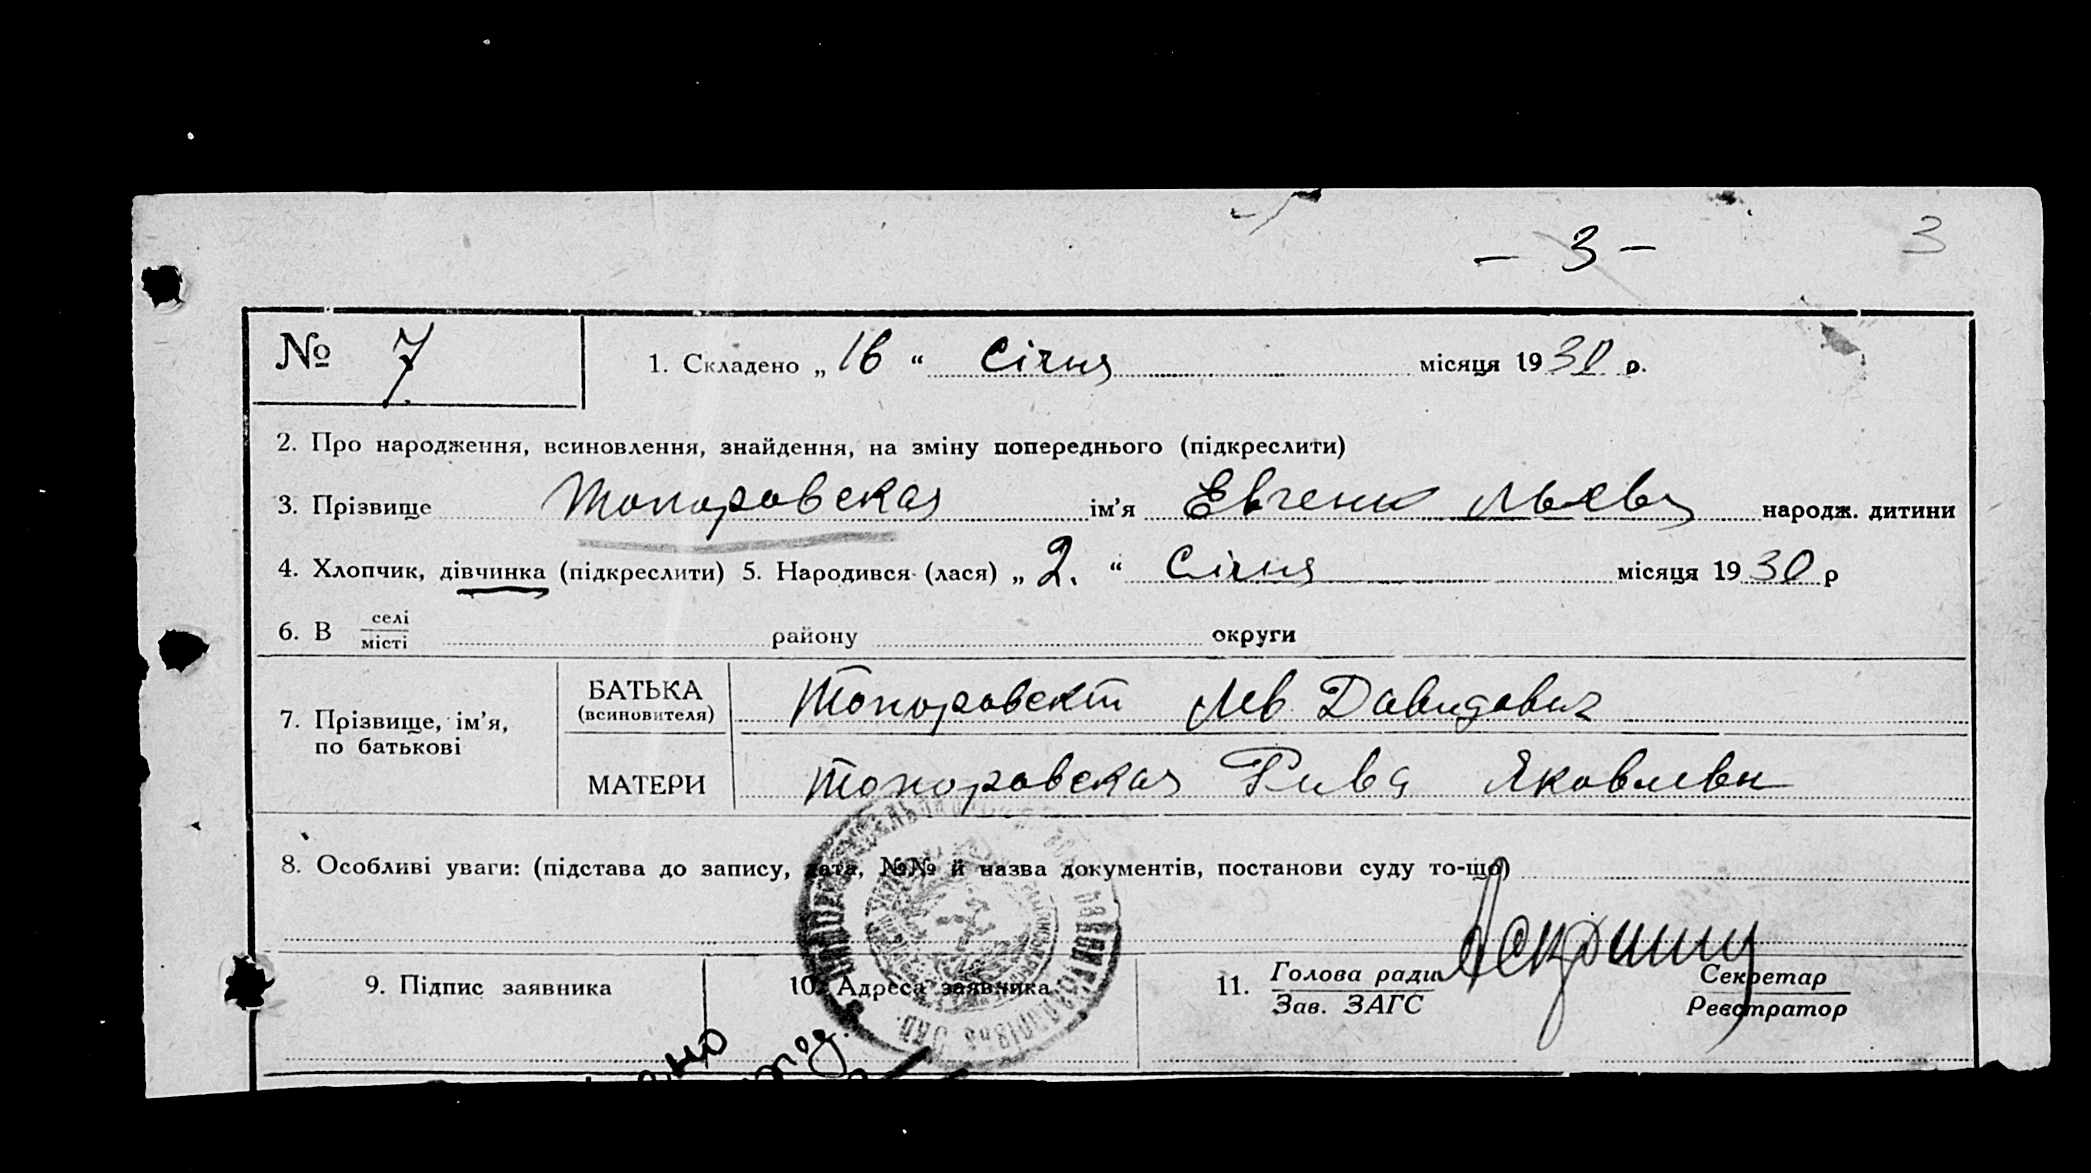 - 3 -
3
№ 7
1. Складено „ 16 “ Січня місяця 19 30 р.
2. Про народження, всиновлення, знайдення, на зміну попереднього (підкреслити)
3. Прізвище Топоровская ім’я Евгения Львовна народж. дитини
4. Хлопчик, дівчинка (підкреслити) 5. Народився (лася) „ 2. “ Січня місяця 19 30 р
6. В селі
місті району округи
7. Прізвище, ім’я,
по батькові
БАТЬКА
(всиновителя)
Топоровский Лев Давидович
МАТЕРИ
Топоровская Рива Яковлевн
8. Особливі уваги: (підстава до запису, дата, №№ й назва документів, постанови суду то-що)
9. Підпис заявника
10. Адреса заявника
11. Голова ради
Зав. ЗАГС
Секретар
Реєстратор